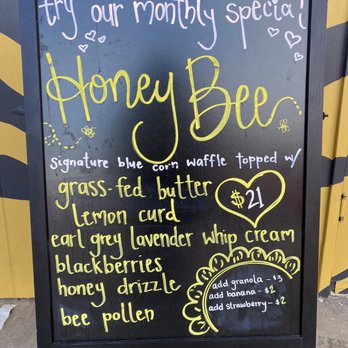 try our monthly special
Honey Bee
signature blue corn waffle topped w/
grass-fed butter
$21
lemon curd
earl grey lavender whip cream
blackberries
honey drizzle
bee pollen
add granola - $3
add banana - $2
add strawberry - $2